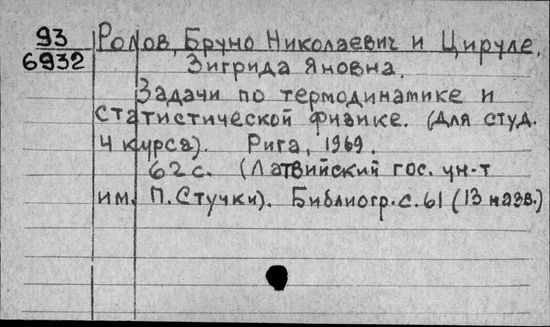 93 Ролов, Бруно Николаевич и Цируле,
6932 Зигрида Яновна.
Задачи по термодинамике и
статистической физике. (Для студ.
4 курса). Рига, 1969.
62 с. (Латвийский гос. ун-т
им. П. Стучки). Библиогр. с. 61 (13 назв.)